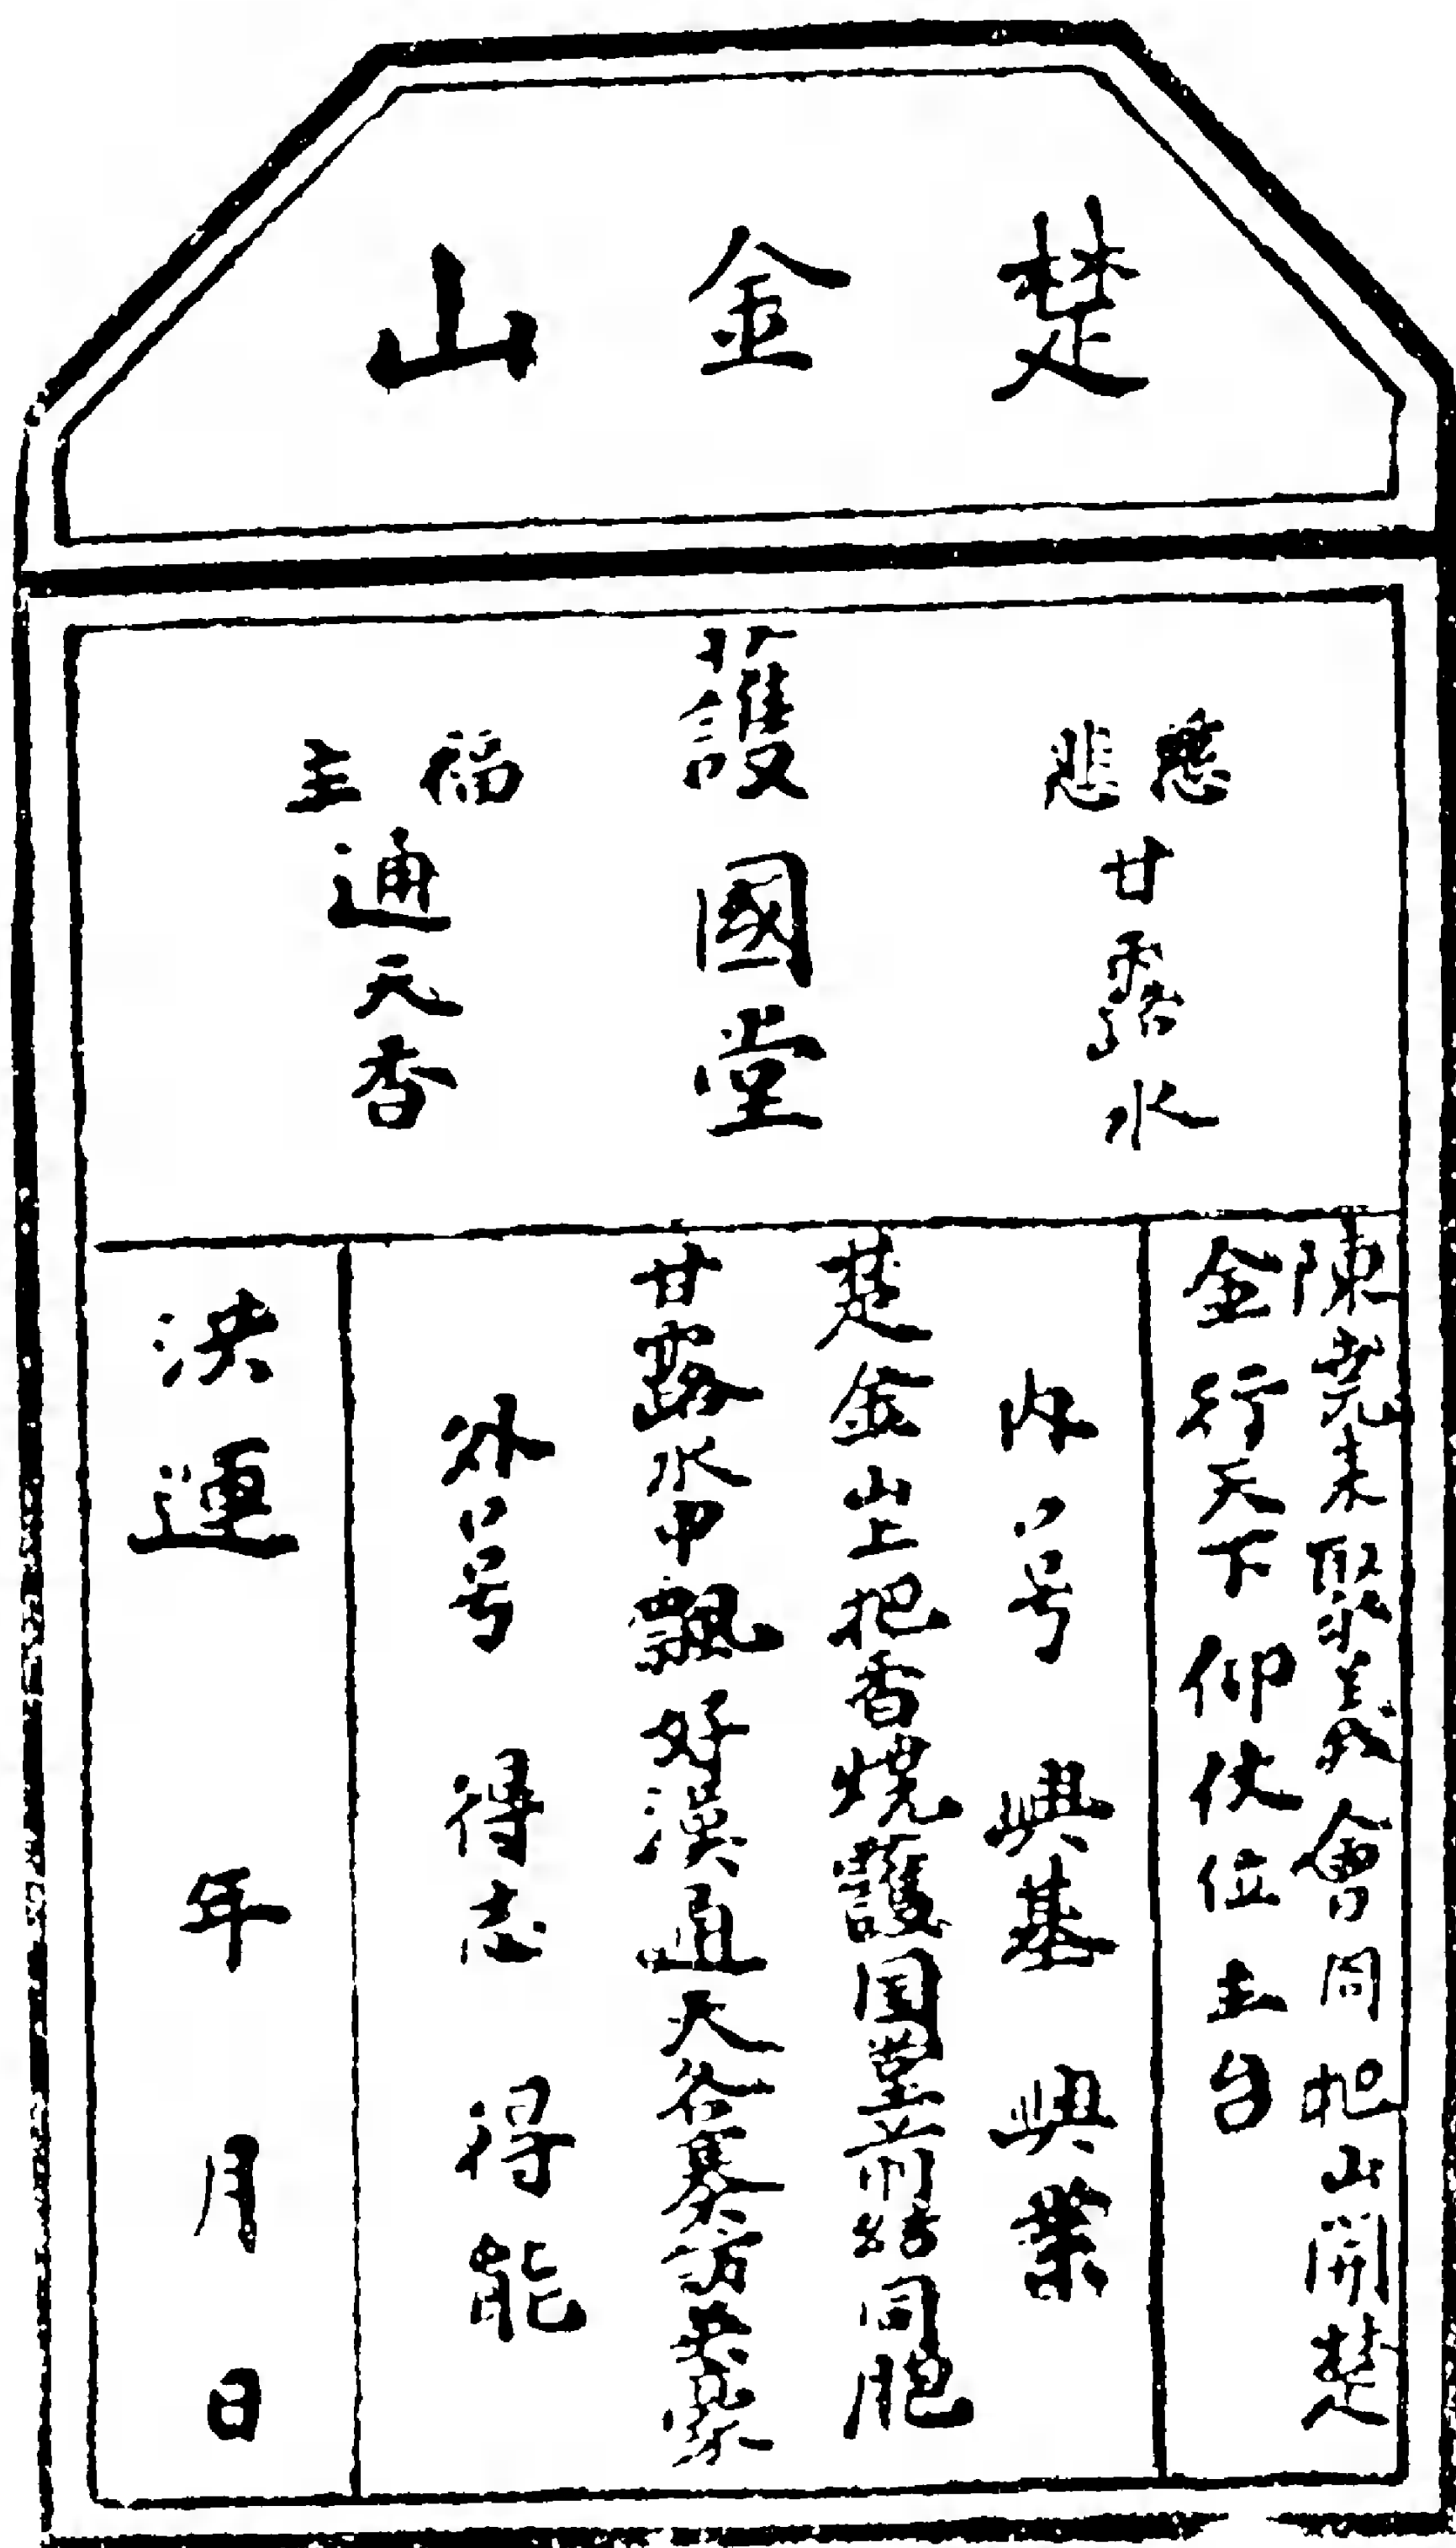 楚金山
慈悲
甘露水
護國堂
福主
通天香
陳堯来聚義會同把山開楚
金行天下仰仗位主台
内口号 興基 興業
楚金山上把香燒護国堂前結同胞
甘露水中飄好漢通天各寨訪英豪
外口号 得志 得能
洪運 年 月 日